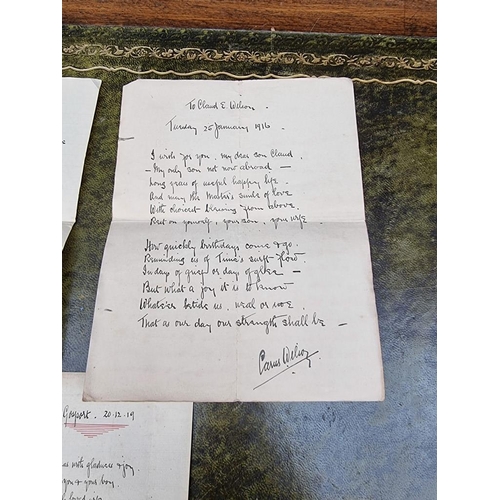 To Claud E. Wilson
Tuesday 25 January 1916.
I wish for you, my dear son Claud,
- My only son not now abroad -
Long years of useful happy life
And may the Master's smile of love
With choicest blessing from above
Rest on yourself, your son, your wife
How quickly birthdays come & go.
Reminding us of Time's swift flow
In days of grief or days of glee -
But what a joy it is to know
Whate'er betide us, weal or woe
That as our day our strength shall be -
Carus Wilson
Gosport. 20.12.19
with gladness & joy
you & your boy.